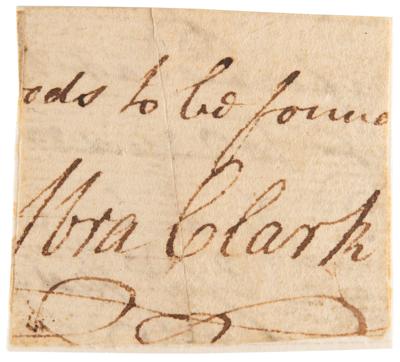 ods to be found
Abra Clark